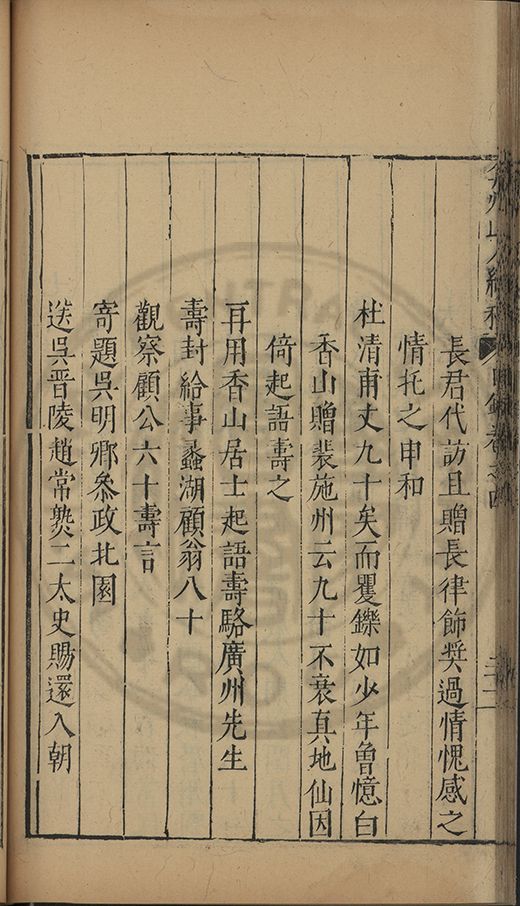 長君代訪且贈長律飾奬過情愧感之
情托之申和
杜清甫丈九十矣而矍鑠如少年曾憶白
香山贈裴施州云九十不衰真地仙因
倚起語壽之
再用香山居士起語壽駱廣州先生
壽封給事蠡湖顧翁八十
觀察顧公六十壽言
寄題吳明卿叅政北園
送吳晉陵趙常㷼二太史賜還入朝